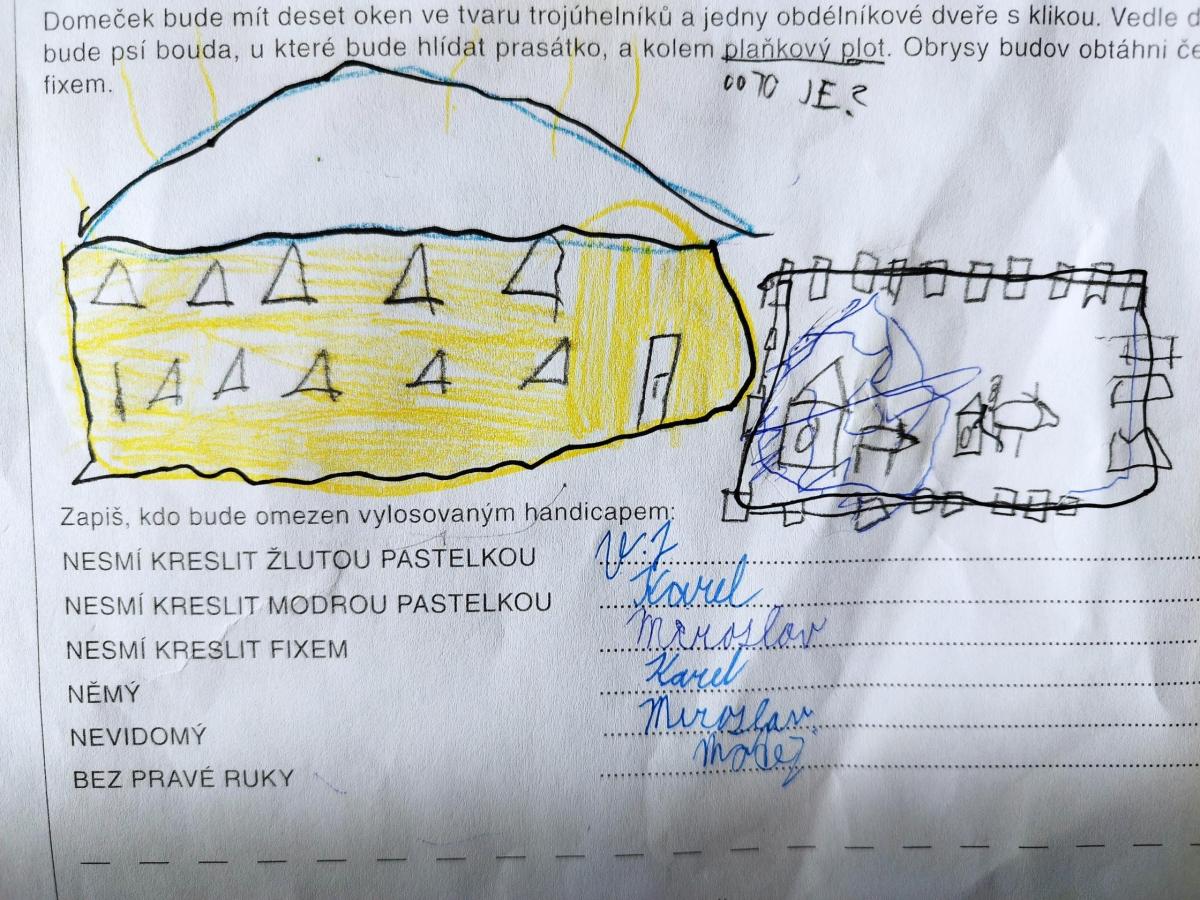 Domeček bude mít deset oken ve tvaru trojúhelníků a jedny obdélníkové dveře s klikou. Vedle d
bude psí bouda, u které bude hlídat prasátko, a kolem plaňkový plot. Obrysy budov obtáhni če
fixem.
JE?
Zapiš, kdo bude omezen vylosovaným handicapem:
NESMÍ KRESLIT ŽLUTOU PASTELKOU V.J
NESMÍ KRESLIT MODROU PASTELKOU Karel
NESMÍ KRESLIT FIXEM Miroslav
NĚMÝ Karel
NEVIDOMÝ Miroslav
BEZ PRAVÉ RUKY